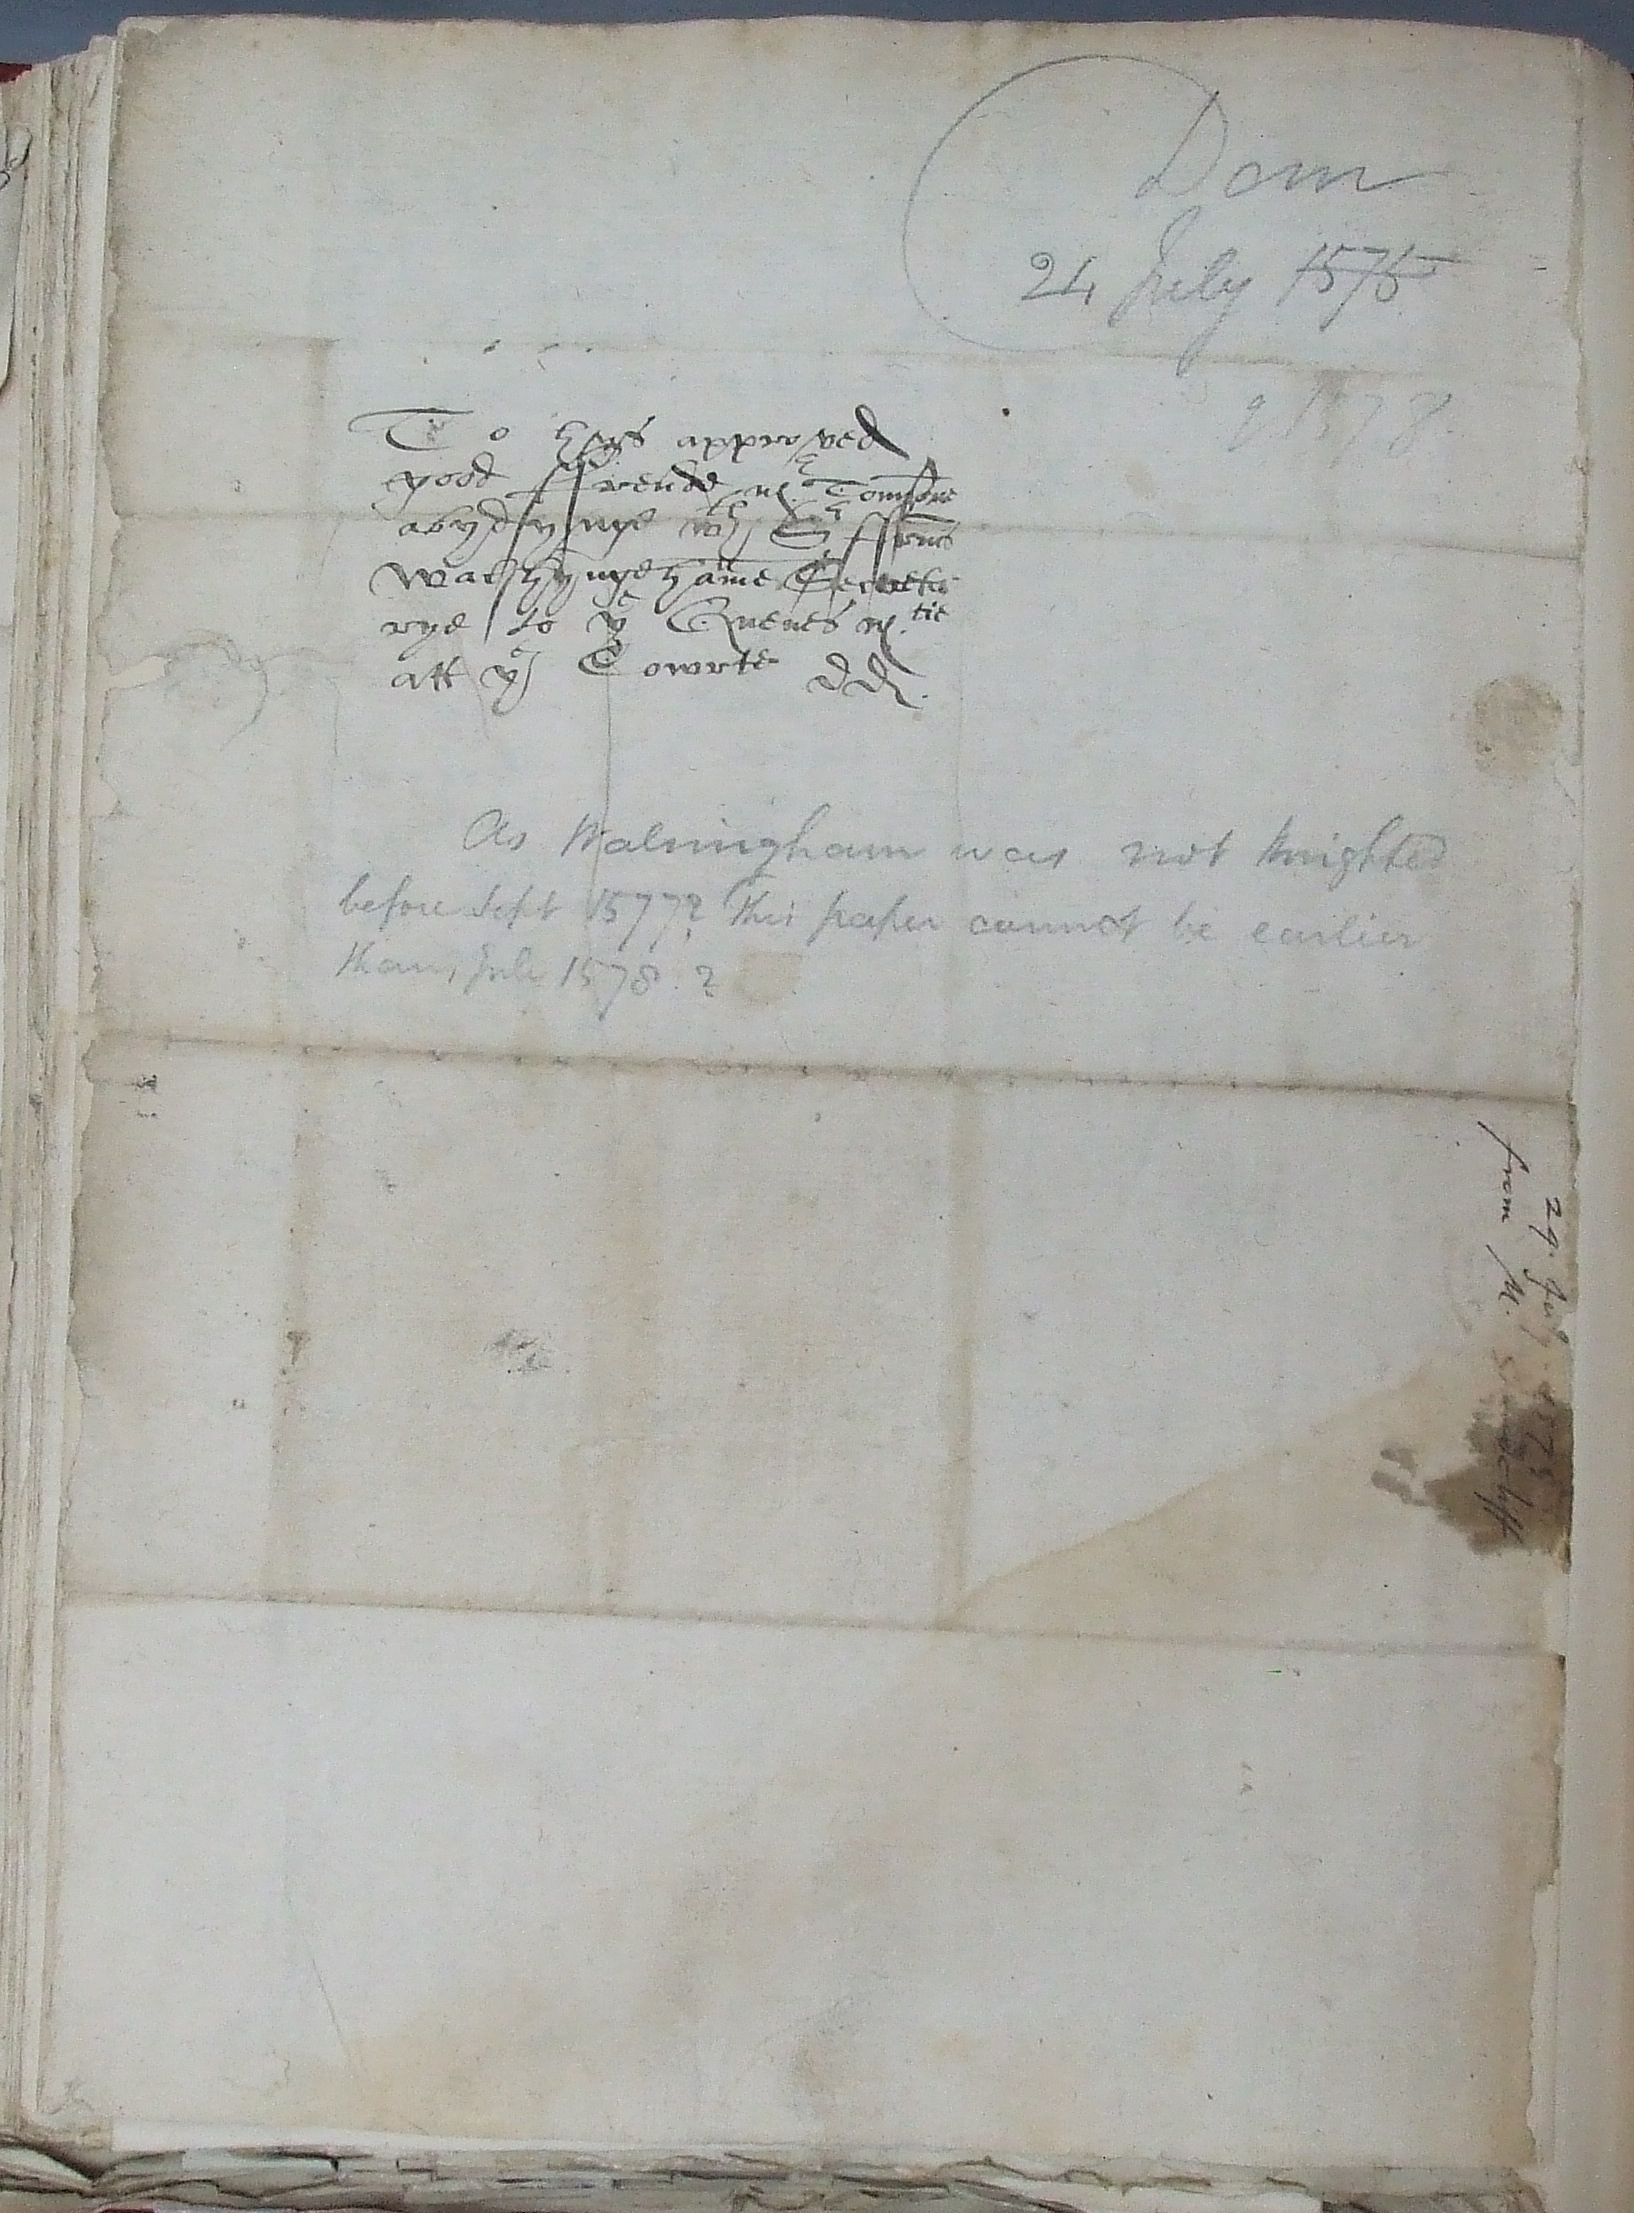 Dom
24 July 1575
q 1578.
To hys approved
good ffrende Mr. Tomsone
abydynge wth Sr ffrncs
Walshyngehame Secreta
rye to ye Quenes M.tie
att ye Cowrte dd.
As Walsingham was not knighted
before Sept 1577? this paper cannot be earlier
than July 1578.?
24. July. 1578
from M.